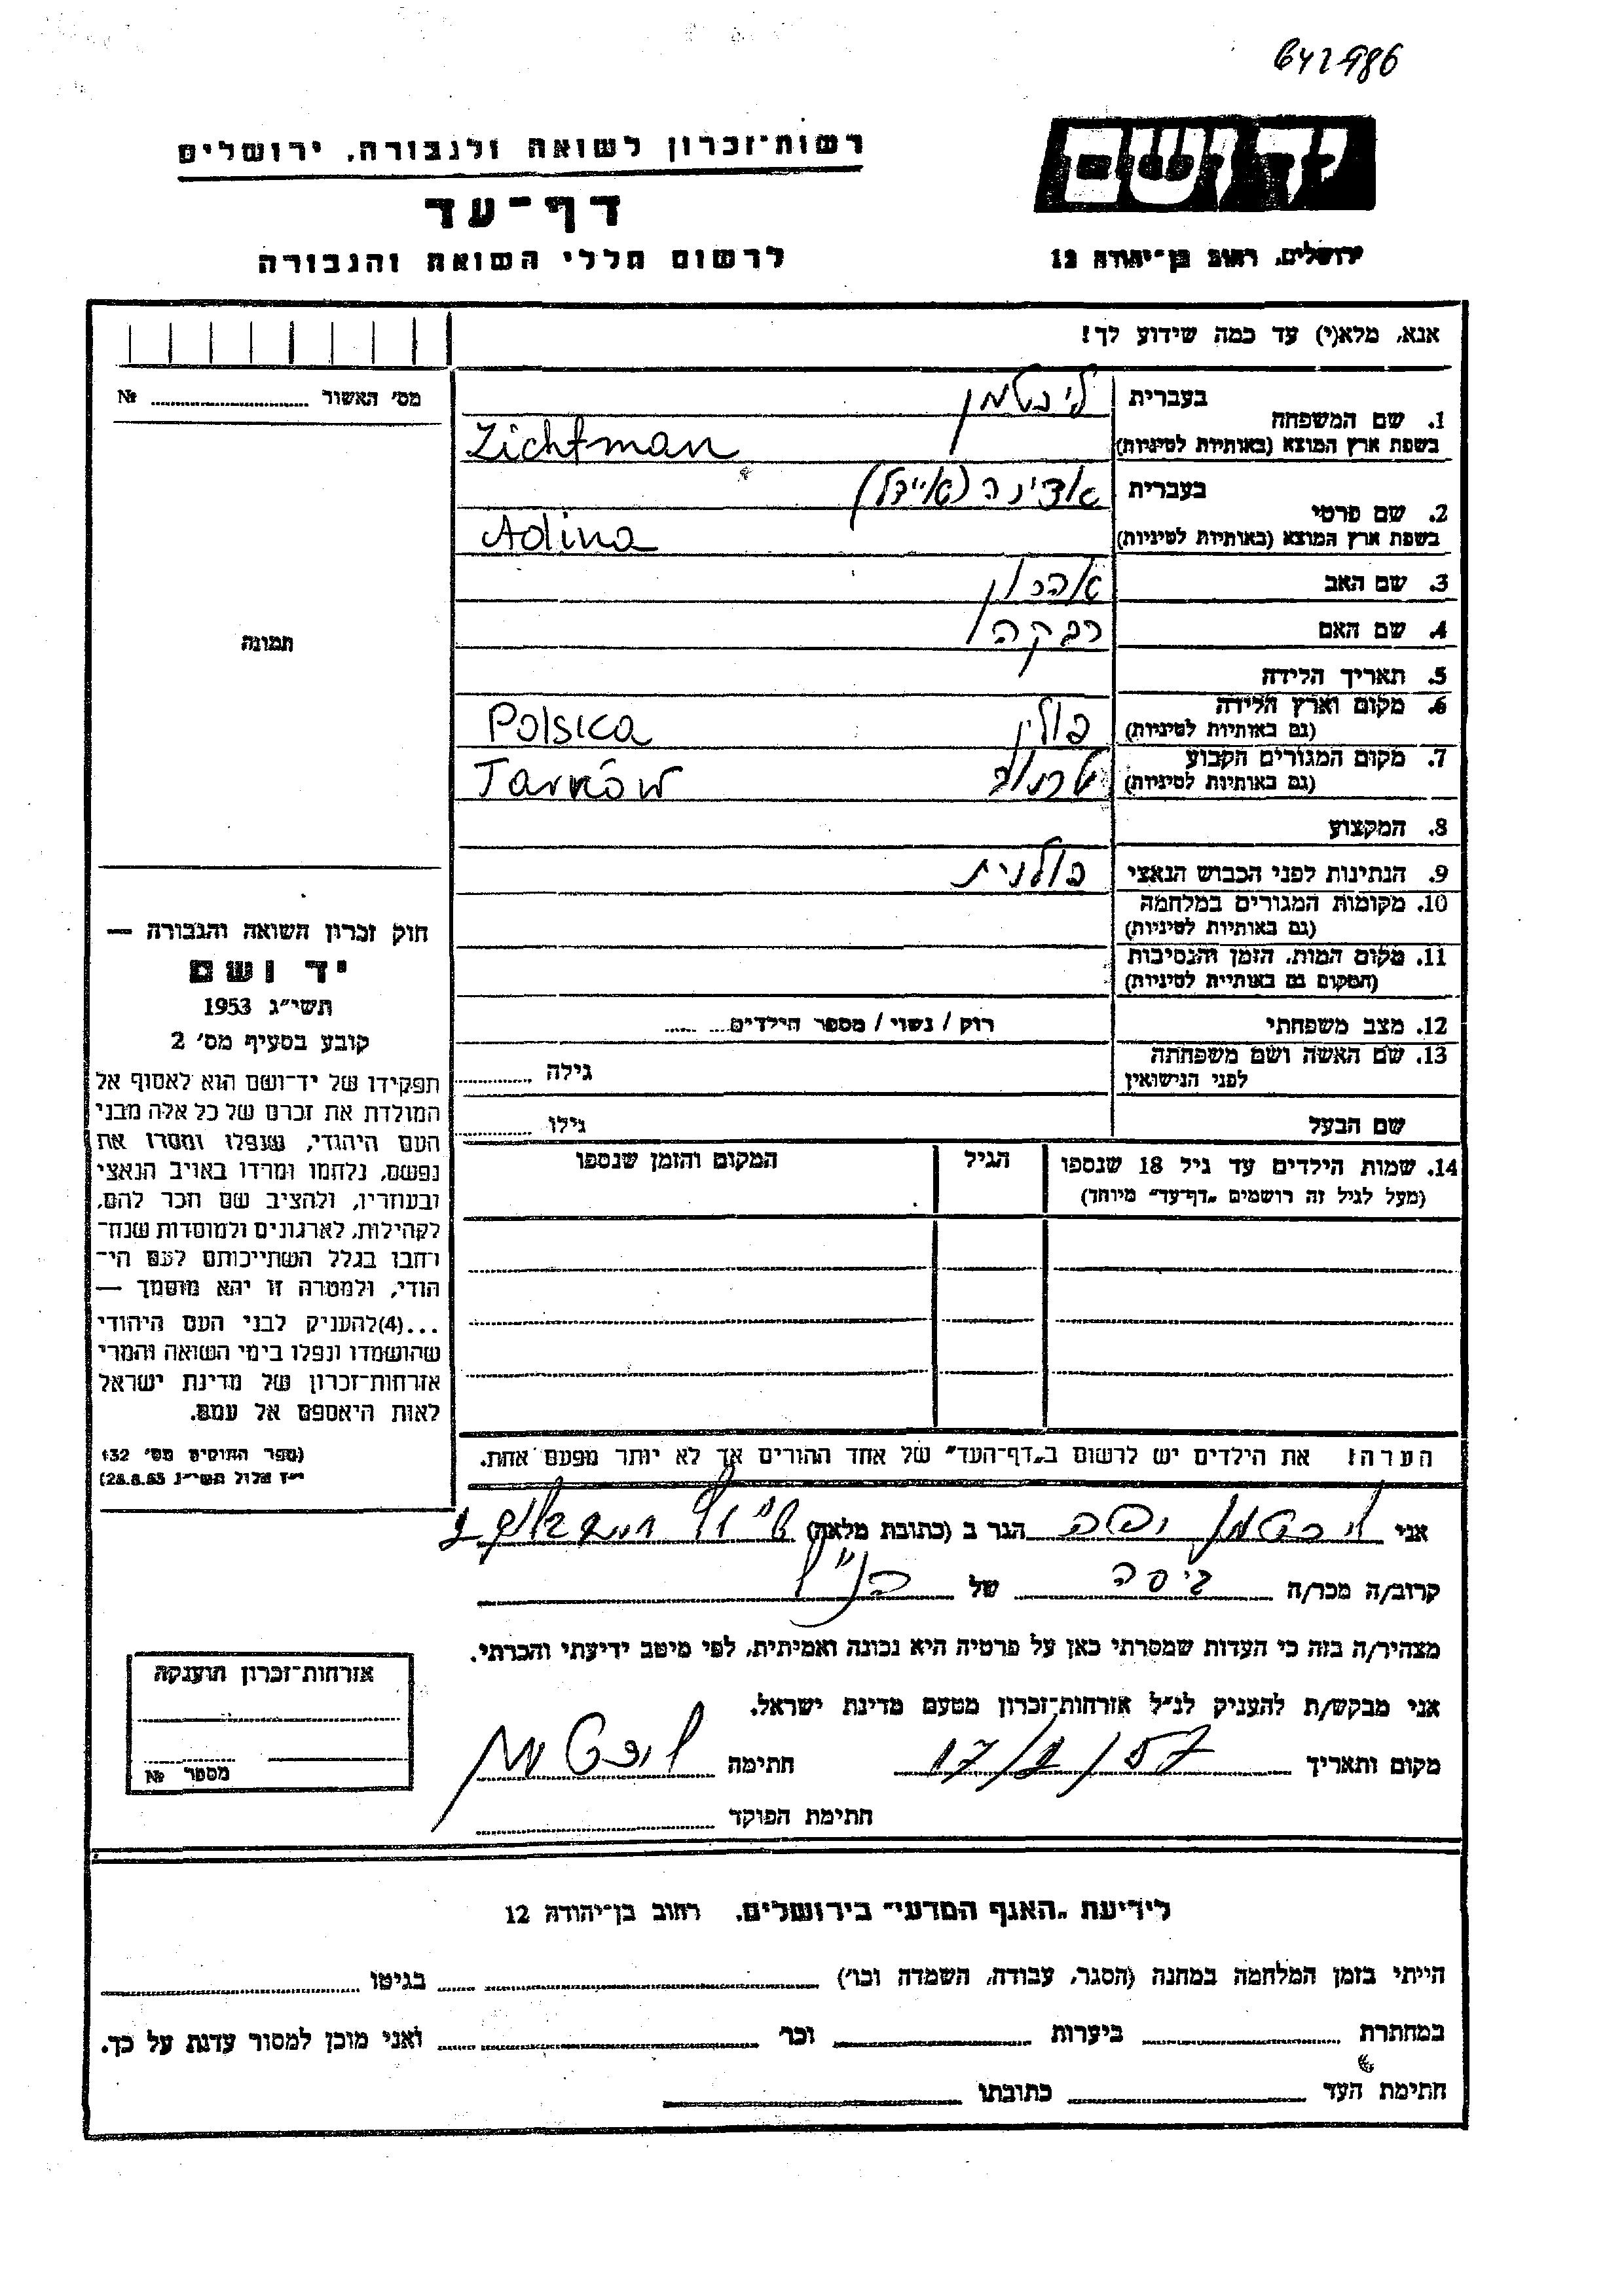 642986
יד ושם
רשות־זכרון לשואה ולגבורה, ירושלים
דף־עד
ירושלים, רחוב בן־יהודה 12
לרשום חללי השואה והגבורה
אנא, מלא(י) עד כמה שידוע לך!
מס׳ האשור ........ №
1. שם המשפחה
בעברית ליכטמן
בשפת ארץ המוצא (באותיות לטיניות) Lichtman
2. שם פרטי
בעברית אדינה (איידל)
בשפת ארץ המוצא (באותיות לטיניות) Adina
3. שם האב אהרון
4. שם האם רבקה
תמונה
5. תאריך הלידה
6. מקום וארץ הלידה פולין Polska
(גם באותיות לטיניות)
7. מקום המגורים הקבוע טרנוב Tarnów
(גם באותיות לטיניות)
8. המקצוע
9. הנתינות לפני הכבוש הנאצי פולנית
10. מקומות המגורים במלחמה
(גם באותיות לטיניות)
11. מקום המות, הזמן והנסיבות
(המקום גם באותיות לטיניות)
12. מצב משפחתי רוק / נשוי / מספר הילדים........
13. שם האשה ושם משפחתה
לפני הנישואין
גילה ........
שם הבעל גילו ........
14. שמות הילדים עד גיל 18 שנספו
(מעל לגיל זה רושמים „דף־עד״ מיוחד)
הגיל
המקום והזמן שנספו
חוק זכרון השואה והגבורה —
יד ושם
תשי״ג 1953
קובע בסעיף מס׳ 2
תפקידו של יד־ושם הוא לאסוף אל
המולדת את זכרם של כל אלה מבני
העם היהודי, שנפלו ומסרו את
נפשם, נלחמו ומרדו באויב הנאצי
ובעוזריו, ולהציב שם וזכר להם,
לקהילות, לארגונים ולמוסדות שנח־
רבו בגלל השתייכותם לעם הי־
הודי, ולמטרה זו יהא מוסמך —
...(4)להעניק לבני העם היהודי
שהושמדו ונפלו בימי השואה והמרי
אזרחות־זכרון של מדינת ישראל
לאות היאספם אל עמם.
(ספר החוקים מס׳ 132
י״ז אלול תשי״ג 28.8.53)
הערה: את הילדים יש לרשום ב„דף־העד״ של אחד ההורים אך לא יותר מפעם אחת.
אני ליכטמן יפה הגר ב (כתובת מלאה)
קרוב/ה מכר/ה גיסה של הנ״ל
מצהיר/ה בזה כי העדות שמסרתי כאן על פרטיה היא נכונה ואמיתית, לפי מיטב ידיעתי והכרתי.
אני מבקש/ת להעניק לנ״ל אזרחות־זכרון מטעם מדינת ישראל.
מקום ותאריך 17/2/57 חתימה ליכטמן
חתימת הפוקד
אזרחות־זכרון הוענקה
מספר №
לידיעת „האגף המדעי״ בירושלים, רחוב בן־יהודה 12
הייתי בזמן המלחמה במחנה (הסגר, עבודה, השמדה וכו׳) ........ בגיטו ........
במחתרת ........ ביערות ........ וכו׳ ........ ואני מוכן למסור עדות על כך.
חתימת העד ........ כתובתו ........